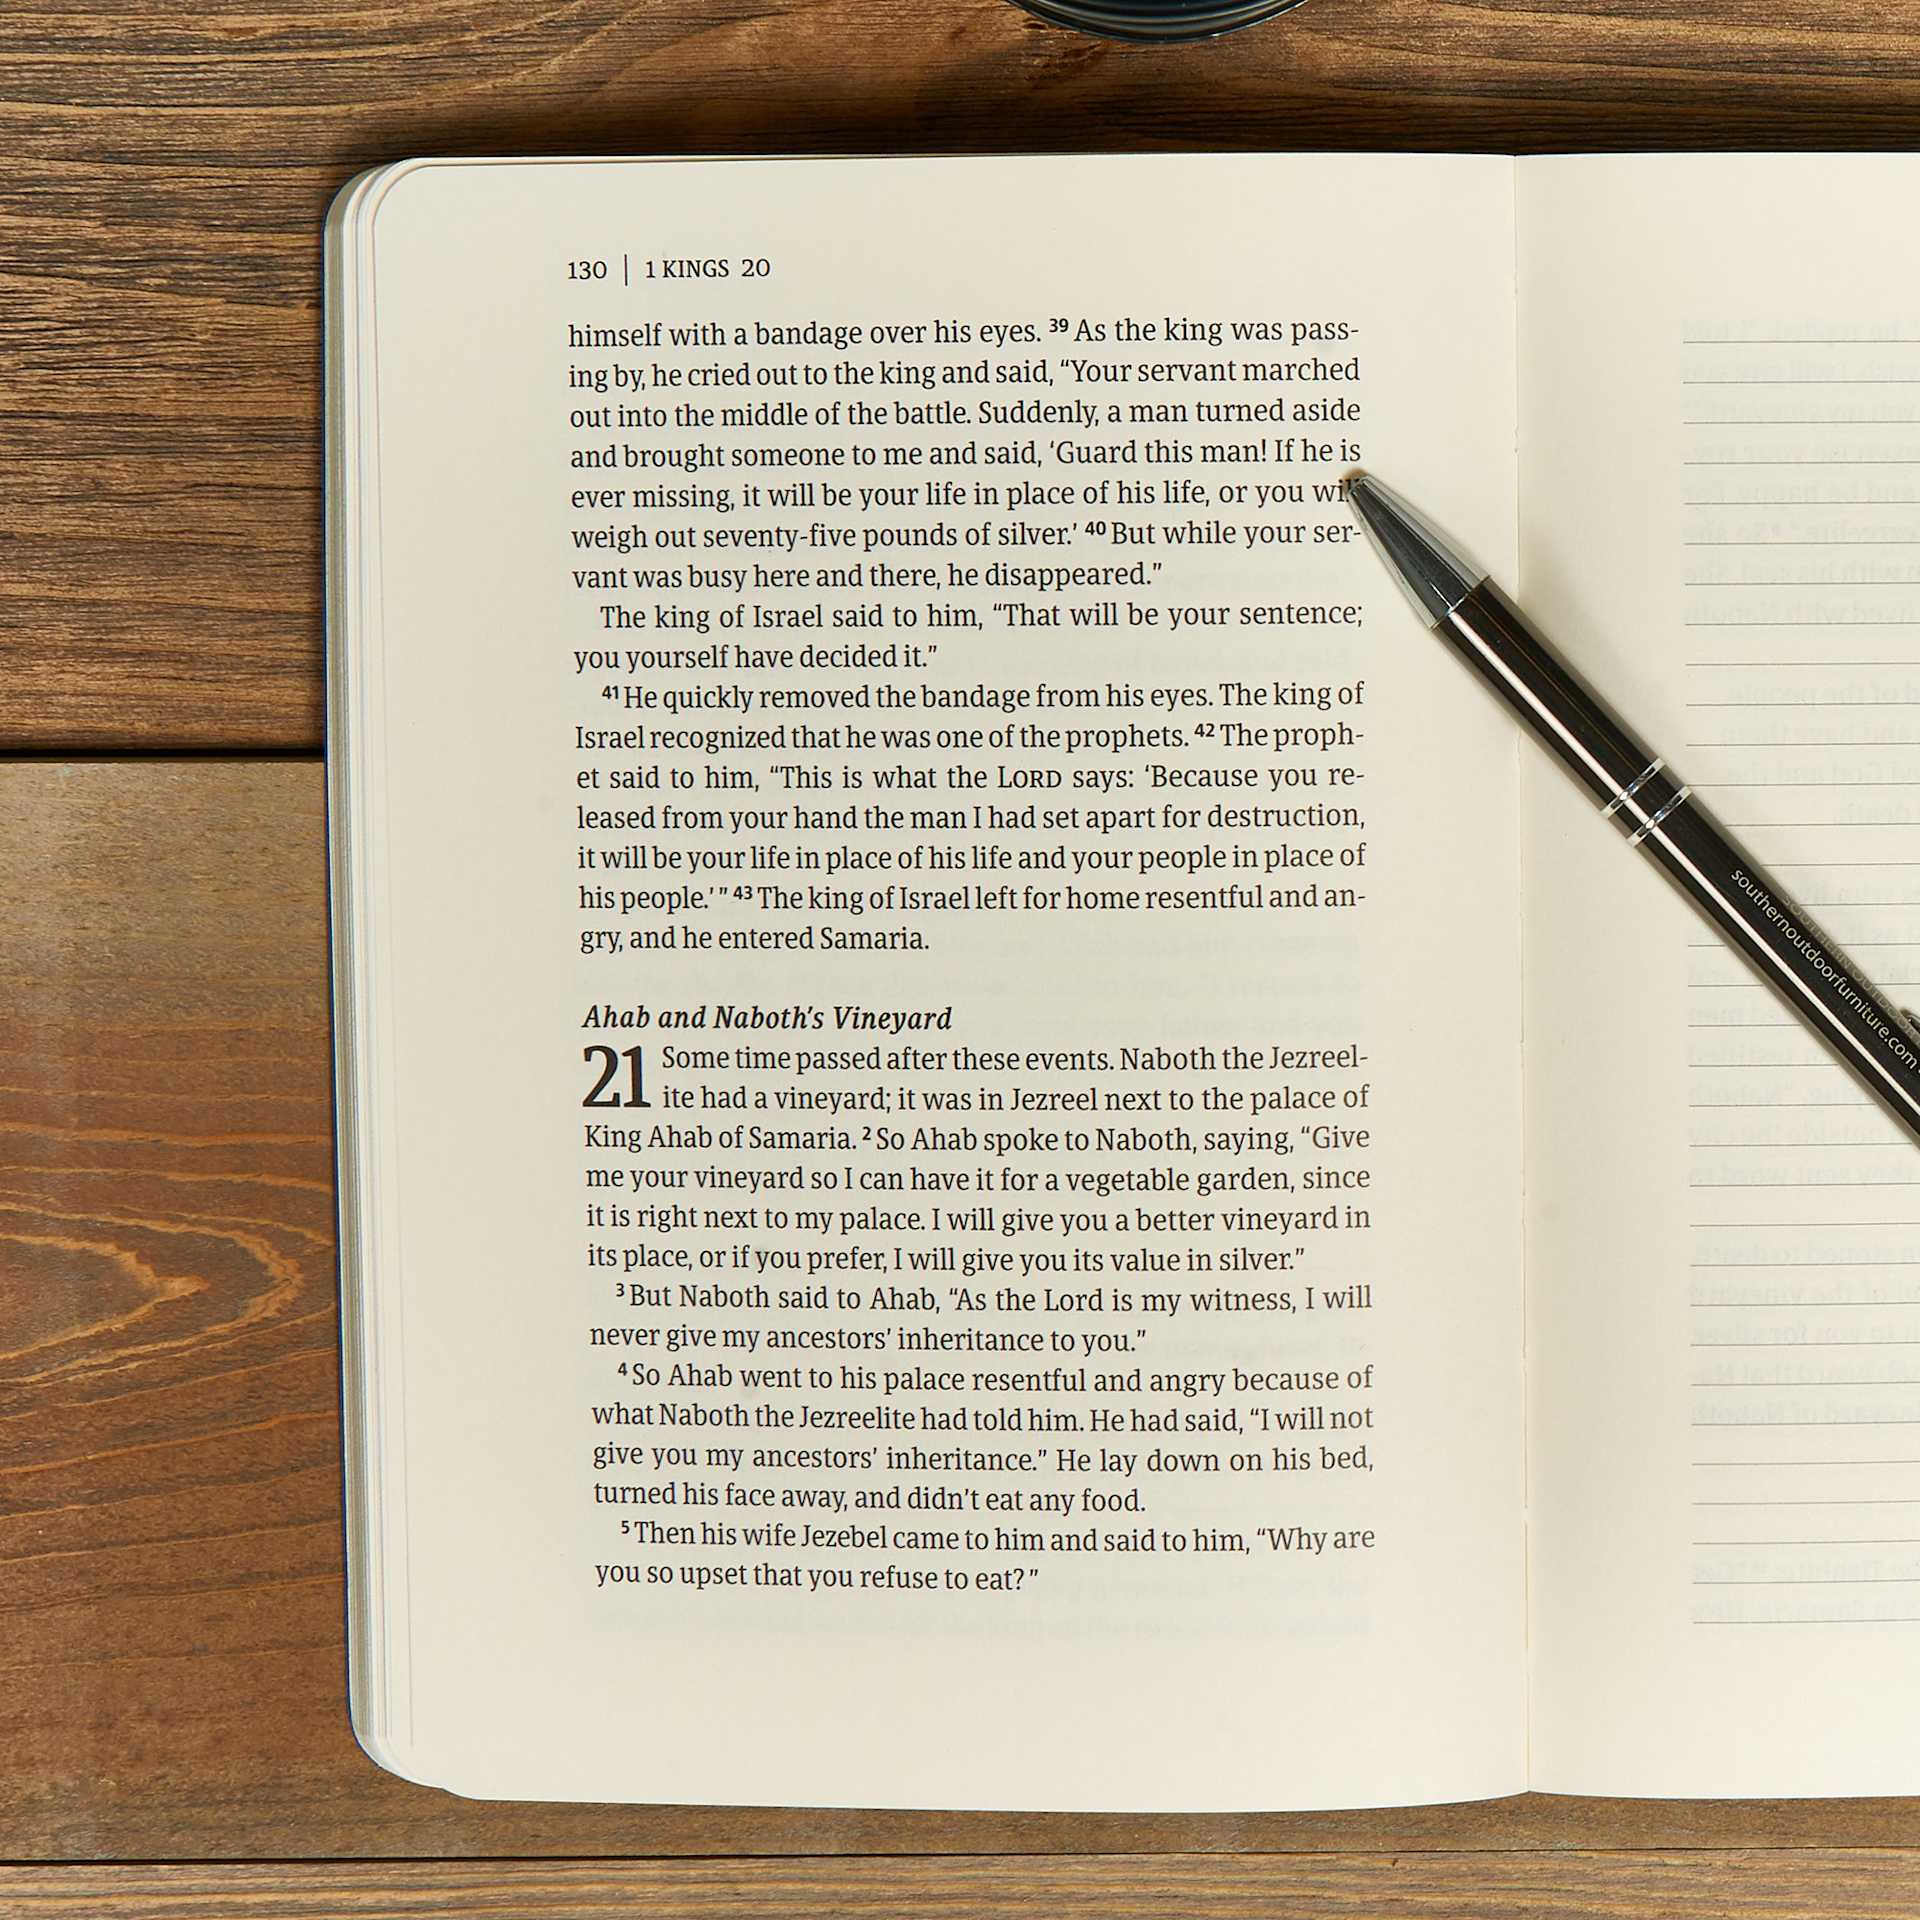 130 | 1 KINGS 20
himself with a bandage over his eyes. 39 As the king was pass-
ing by, he cried out to the king and said, “Your servant marched
out into the middle of the battle. Suddenly, a man turned aside
and brought someone to me and said, ‘Guard this man! If he is
ever missing, it will be your life in place of his life, or you will
weigh out seventy-five pounds of silver.’ 40 But while your ser-
vant was busy here and there, he disappeared.”
The king of Israel said to him, “That will be your sentence;
you yourself have decided it.”
41 He quickly removed the bandage from his eyes. The king of
Israel recognized that he was one of the prophets. 42 The proph-
et said to him, “This is what the LORD says: ‘Because you re-
leased from your hand the man I had set apart for destruction,
it will be your life in place of his life and your people in place of
his people.’ ” 43 The king of Israel left for home resentful and an-
gry, and he entered Samaria.
Ahab and Naboth’s Vineyard
21 Some time passed after these events. Naboth the Jezreel-
ite had a vineyard; it was in Jezreel next to the palace of
King Ahab of Samaria. 2 So Ahab spoke to Naboth, saying, “Give
me your vineyard so I can have it for a vegetable garden, since
it is right next to my palace. I will give you a better vineyard in
its place, or if you prefer, I will give you its value in silver.”
3 But Naboth said to Ahab, “As the Lord is my witness, I will
never give my ancestors’ inheritance to you.”
4 So Ahab went to his palace resentful and angry because of
what Naboth the Jezreelite had told him. He had said, “I will not
give you my ancestors’ inheritance.” He lay down on his bed,
turned his face away, and didn’t eat any food.
5 Then his wife Jezebel came to him and said to him, “Why are
you so upset that you refuse to eat?”
southernoutdoorfurniture.com